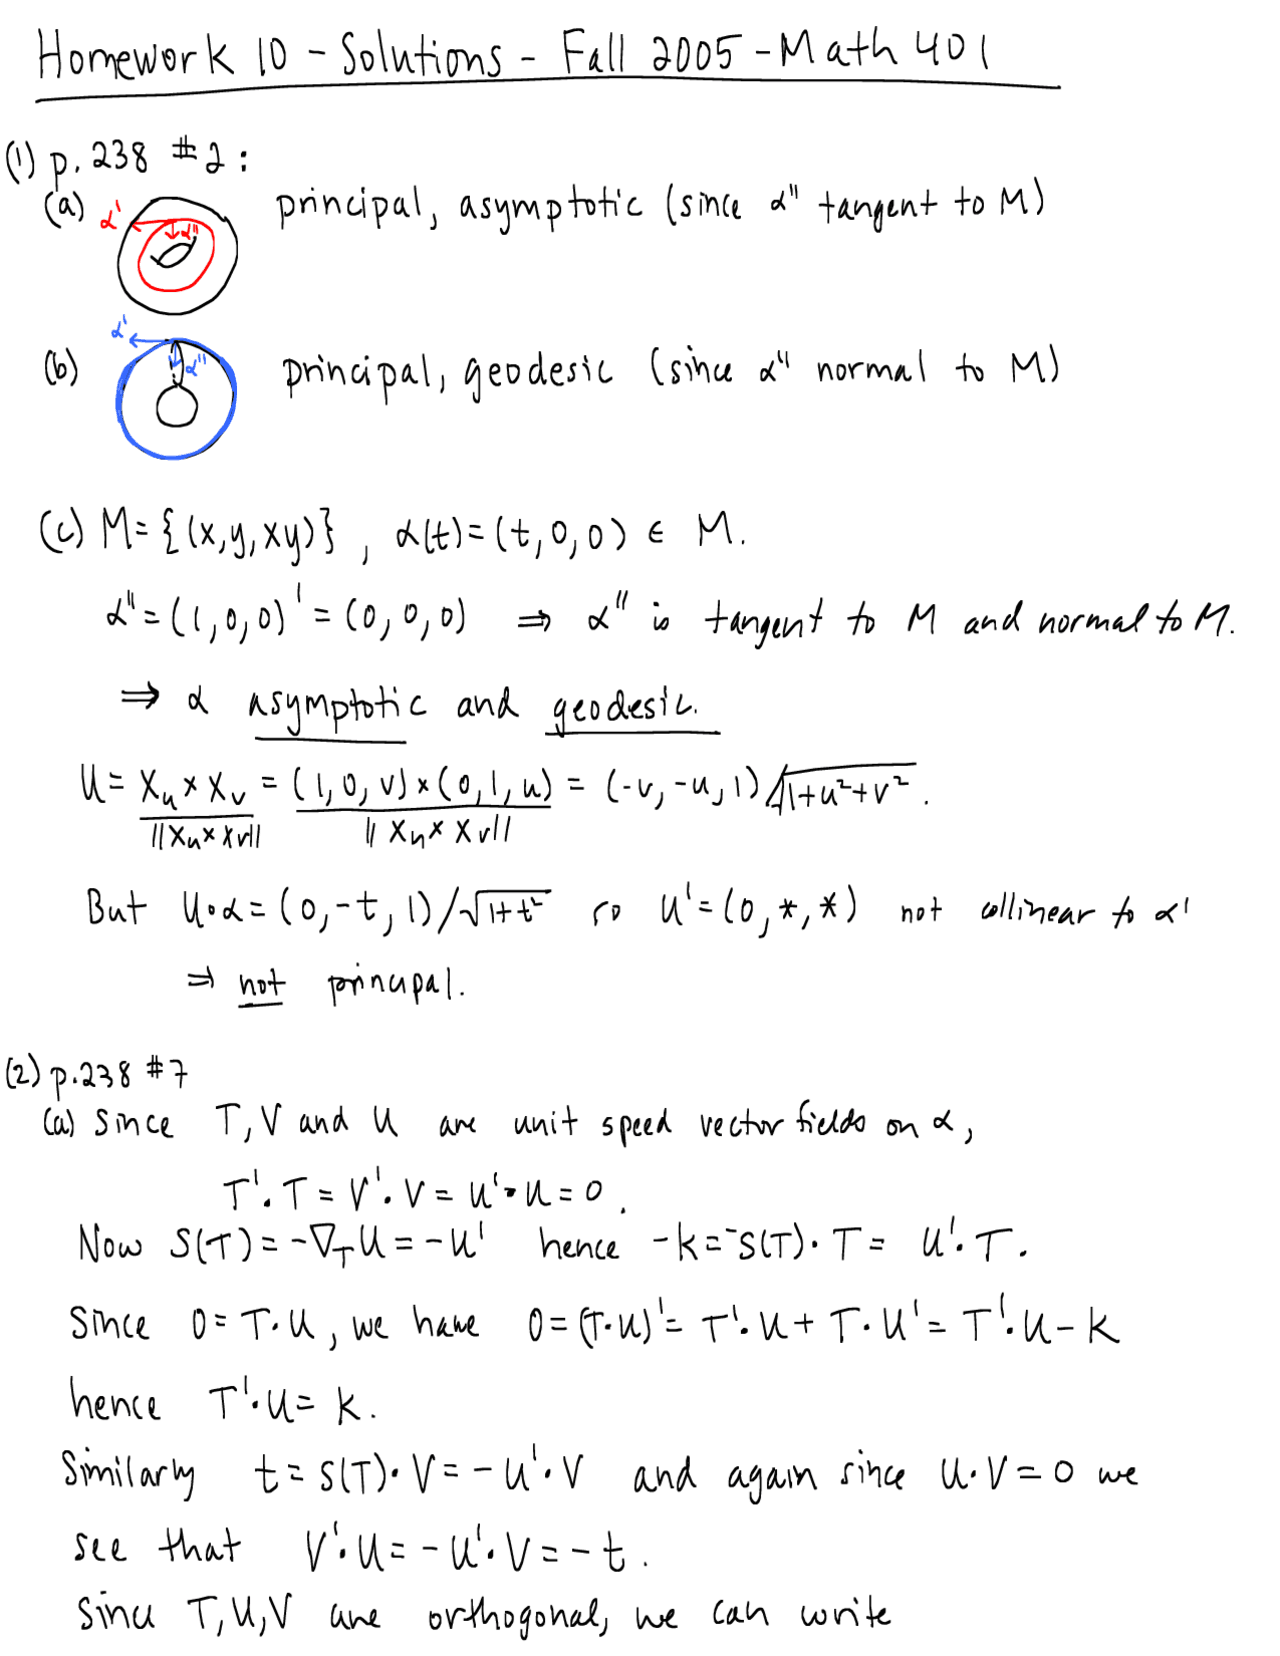 Homework 10 - Solutions - Fall 2005 - Math 401
(1) p. 238 #2:
(a) α' α'' principal, asymptotic (since α'' tangent to M)
(b) α' α'' principal, geodesic (since α'' normal to M)
(c) M = {(x,y,xy)}, α(t) = (t,0,0) ∈ M.
α'' = (1,0,0)' = (0,0,0) ⇒ α'' is tangent to M and normal to M.
⇒ α asymptotic and geodesic.
U = Xu × Xv / ||Xu × Xv|| = (1,0,v) × (0,1,u) / ||Xu × Xv|| = (-v,-u,1)/√1+u²+v².
But U∘α = (0,-t,1)/√1+t² so U' = (0,*,*) not collinear to α'
⇒ not principal.
(2) p.238 #7
(a) Since T, V and U are unit speed vector fields on α,
T'·T = V'·V = U'·U = 0.
Now S(T) = -∇_T U = -U' hence -k = -S(T)·T = U'·T.
Since 0 = T·U, we have 0 = (T·U)' = T'·U + T·U' = T'·U - k
hence T'·U = k.
Similarly t = S(T)·V = -U'·V and again since U·V = 0 we
see that V'·U = -U'·V = -t.
Since T,U,V are orthogonal, we can write